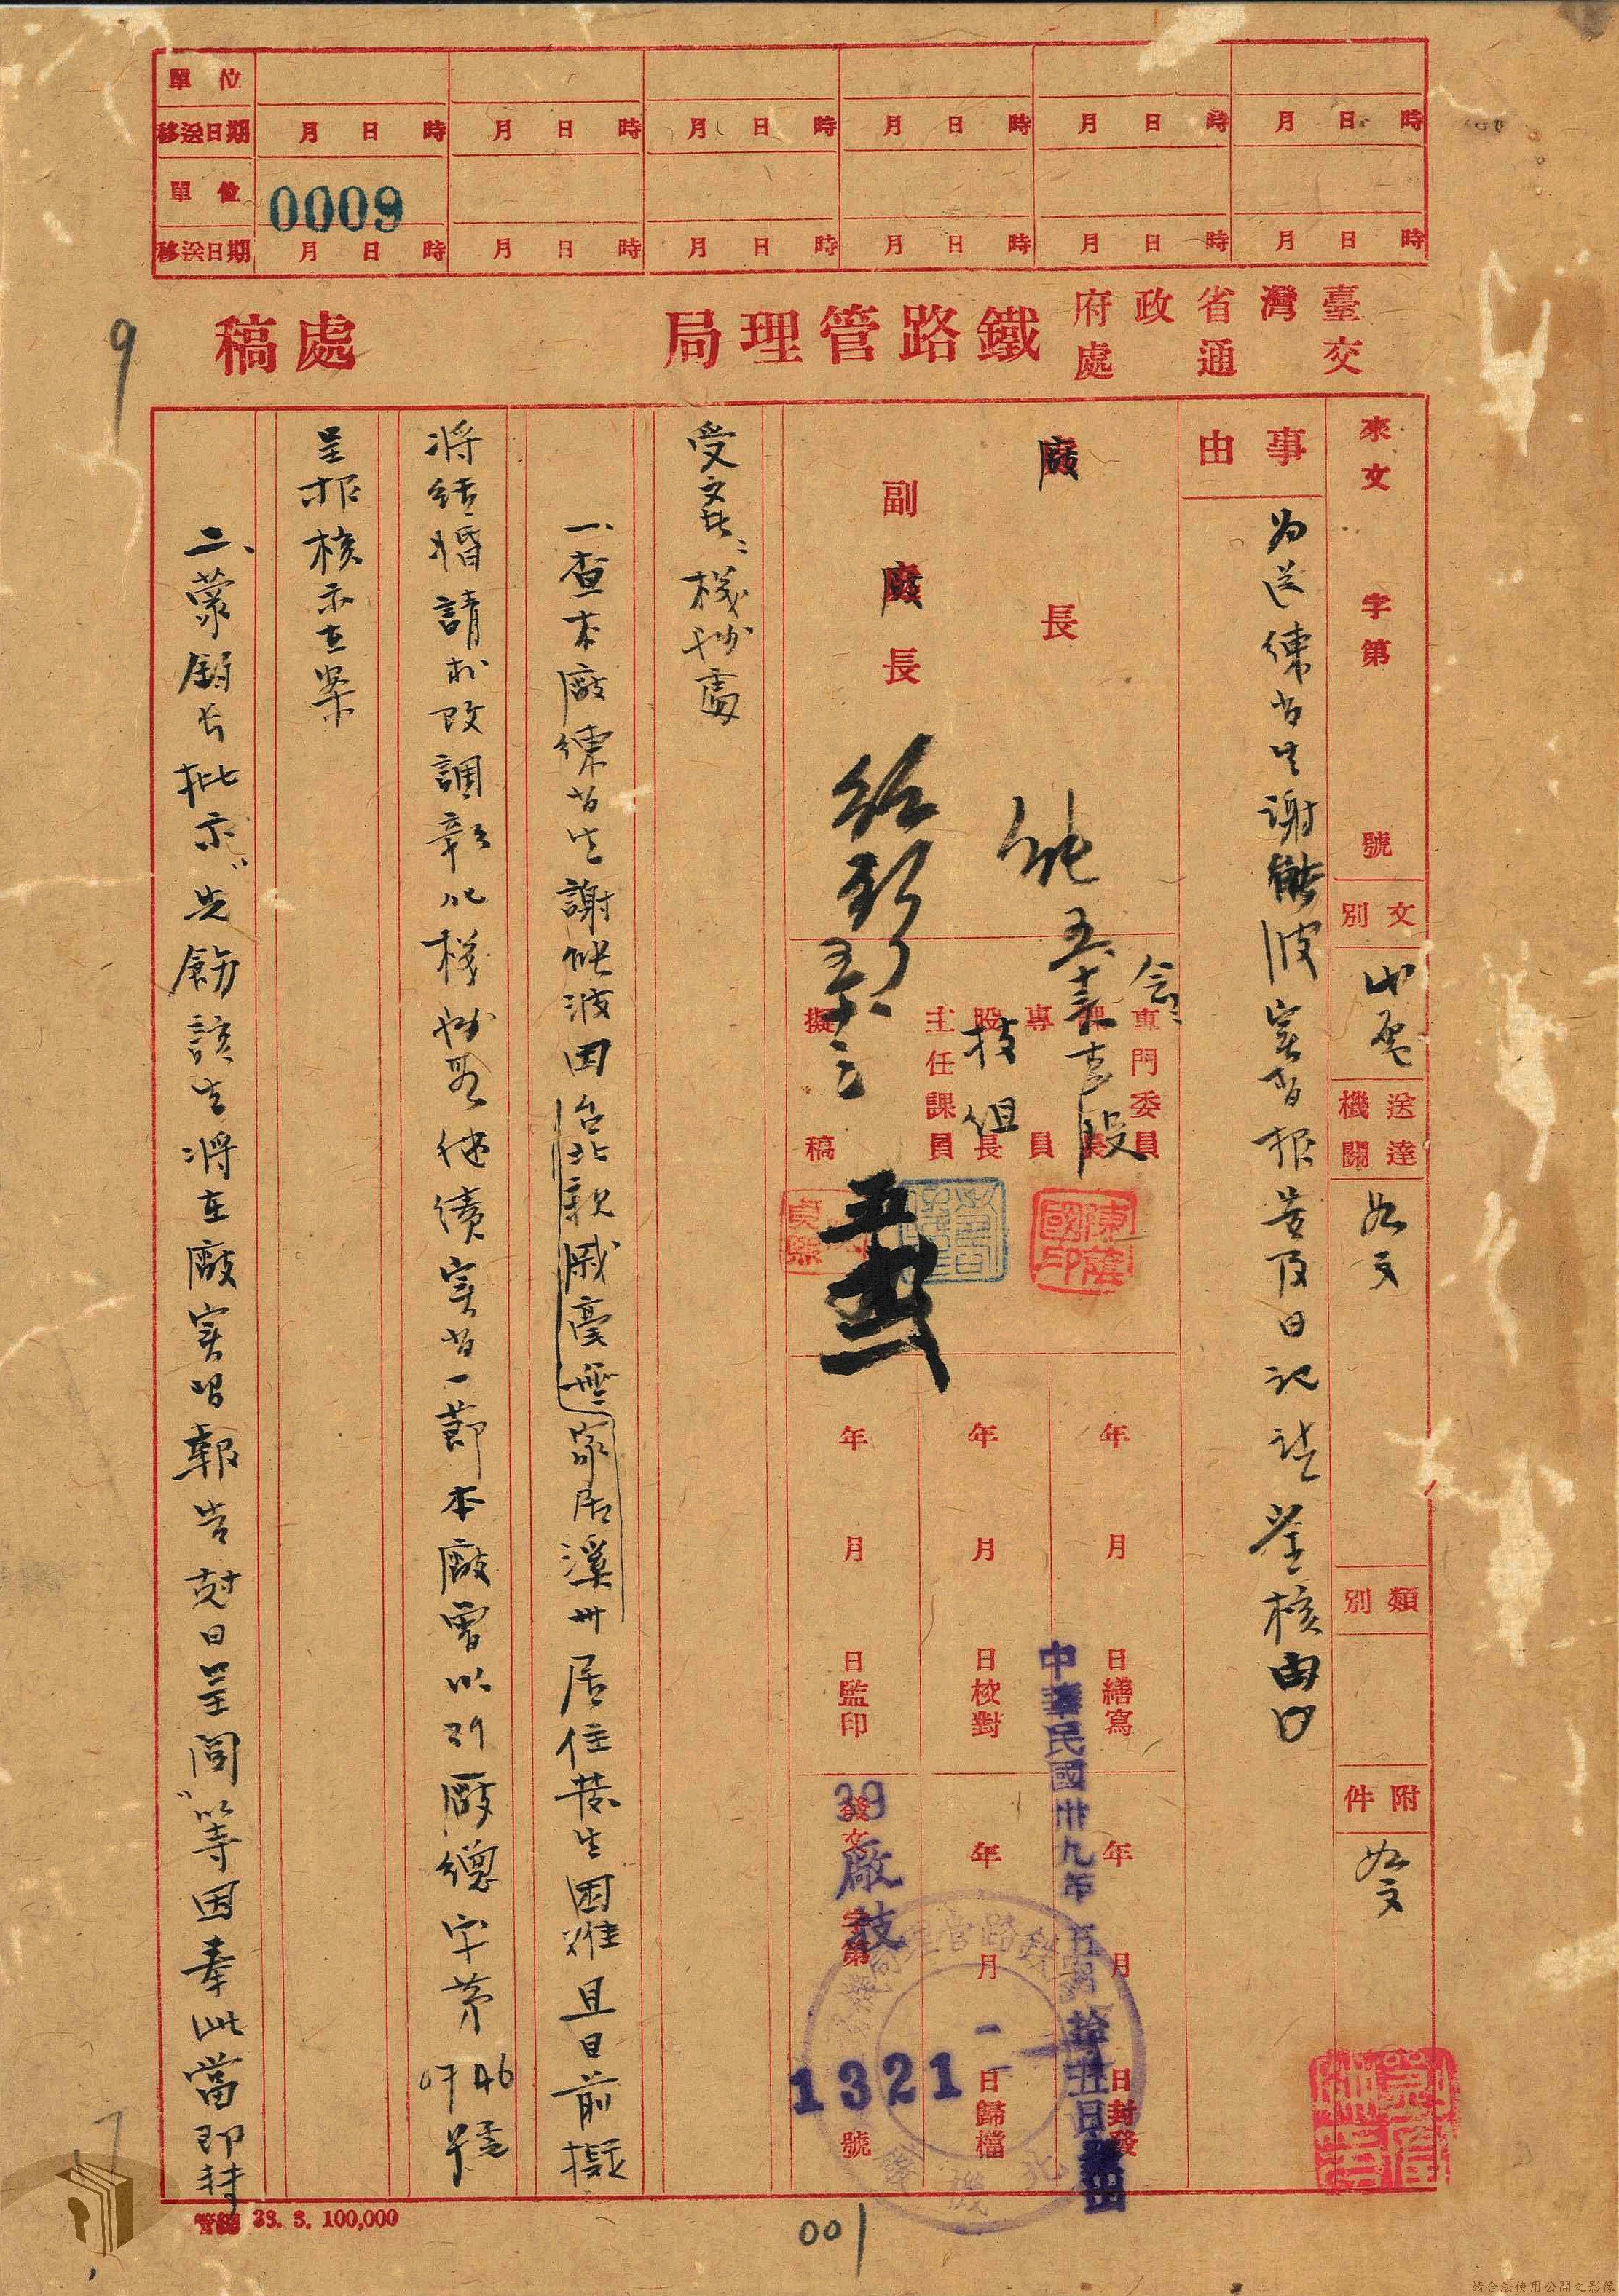 單位
移送日期 月 日 時 月 日 時 月 日 時 月 日 時 月 日 時 月 日 時
單位
0009
移送日期 月 日 時 月 日 時 月 日 時 月 日 時 月 日 時 月 日 時
臺灣省政府
交通處
鐵路管理局
處稿
9
來文 字第 號
文別
送達機關 如文
類別
附件 如文
事由
為送練習生謝能波實習報告及日記請鑒核由
廠長
副廠長
專門委員
課長
專員
股長
主任課員
擬稿
會
技組
陳蔭國印
年 月 日繕寫
年 月 日校對
年 月 日監印
年 月 日封發
年 月 日歸檔
發文 字第 號
中華民國卅九年五月拾五日發出
39廠技
1321
受文者:機務處
一、查本廠練習生謝能波因台北親戚毫無家居溪州居住發生困難且日前擬
將結婚請求改調彰化機務段繼續實習一節本廠曾以引廠總字第0746號
呈報核示在案
二、蒙 鈞長批示"先飭該生將在廠實習報告尅日呈閱"等因奉此當即轉
管總 38. 3. 100,000
001
請合法使用公開之影像